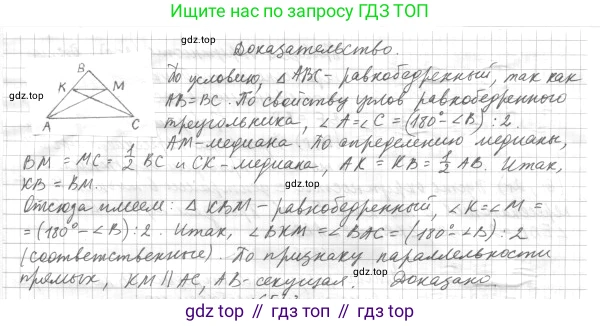 Ищите нас по запросу ГДЗ ТОП
Доказательство.
B
K M
A C
По условию, △ABC - равнобедренный, так как
AB=BC. По свойству углов равнобедренного
треугольника, ∠A=∠C=(180°-∠B):2
AM-медиана. По определению медианы,
BM = MC = 1/2 BC и CK - медиана, AK = KB = 1/2 AB. Итак,
KB = BM.
Отсюда имеем: △ KBM - равнобедренный, ∠K=∠M=
=(180°-∠B):2. Итак, ∠BKM=∠BAC=(180°-∠B):2
(соответственные). По признаку параллельности
прямых, KM || AC, AB-секущая. Доказано.
gdz.top
gdz.top
gdz.top
gdz.top
gdz.top
gdz.top // гдз топ // гдз.топ